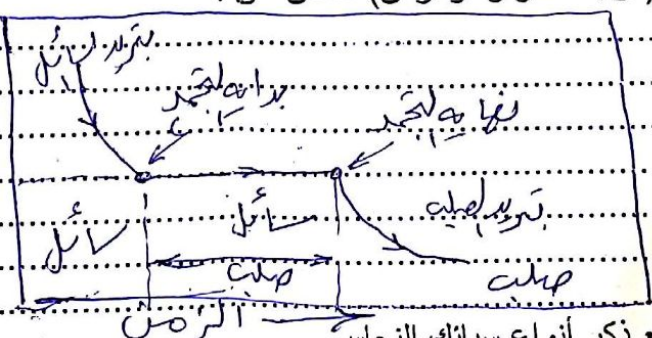 تبريد سائل
بداية التجمد
نهاية التجمد
تبريد الصلب
سائل
سائل
صلب
صلب
الزمن
ذكر أنواع سبائك النحاس